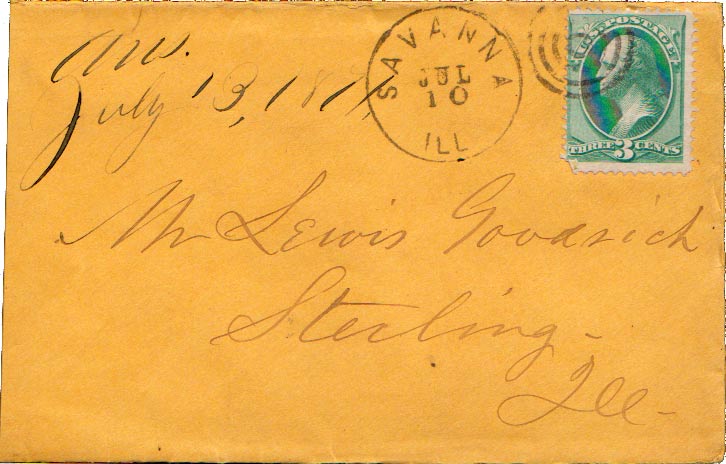 Ans.
July 13, 187
SAVANNA
JUL
10
ILL
U.S. POSTAGE
THREE 3 CENTS
Mr Lewis Goodrich
Sterling-
Ill-